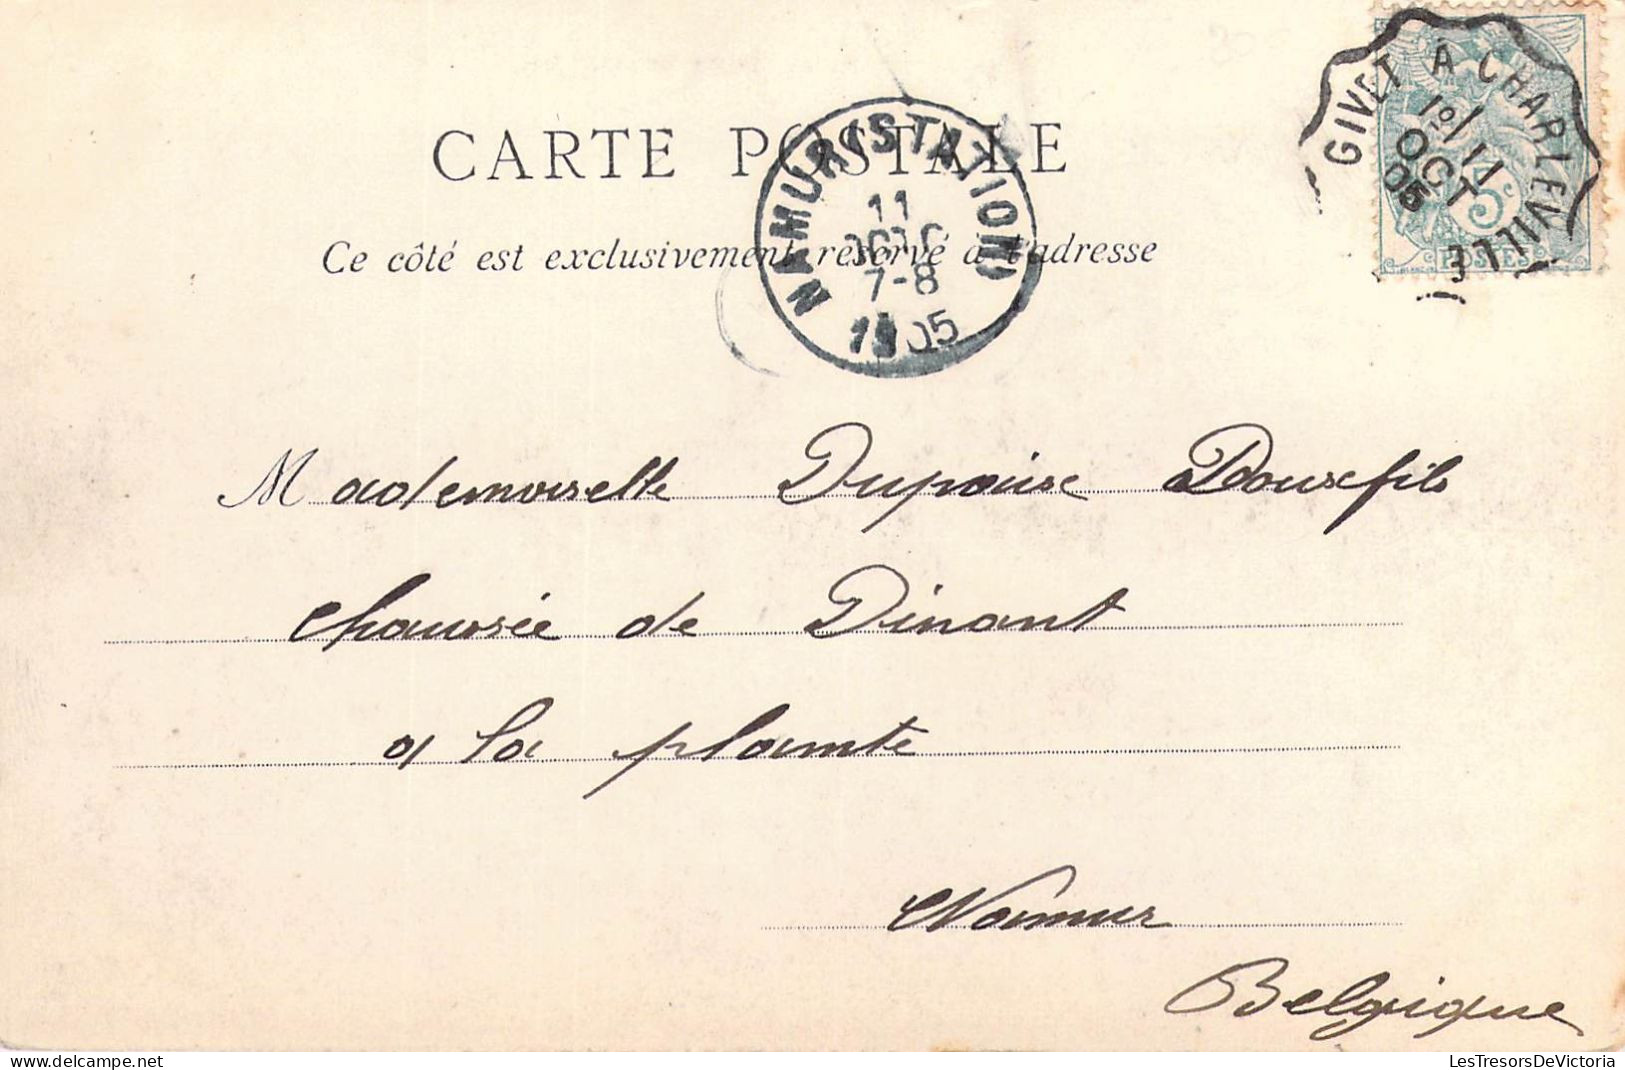 CARTE POSTALE
Ce côté est exclusivement réservé à l'adresse
NAMUR (STATION)
11
OCTO
7-8
1905
GIVET À CHARLEVILLE
1° / 11
OCT
05
5c
POSTES
Mademoiselle Dupaise
chaussée de Dinant
a la plamte
Namur
Belgique
LesTresorsDeVictoria